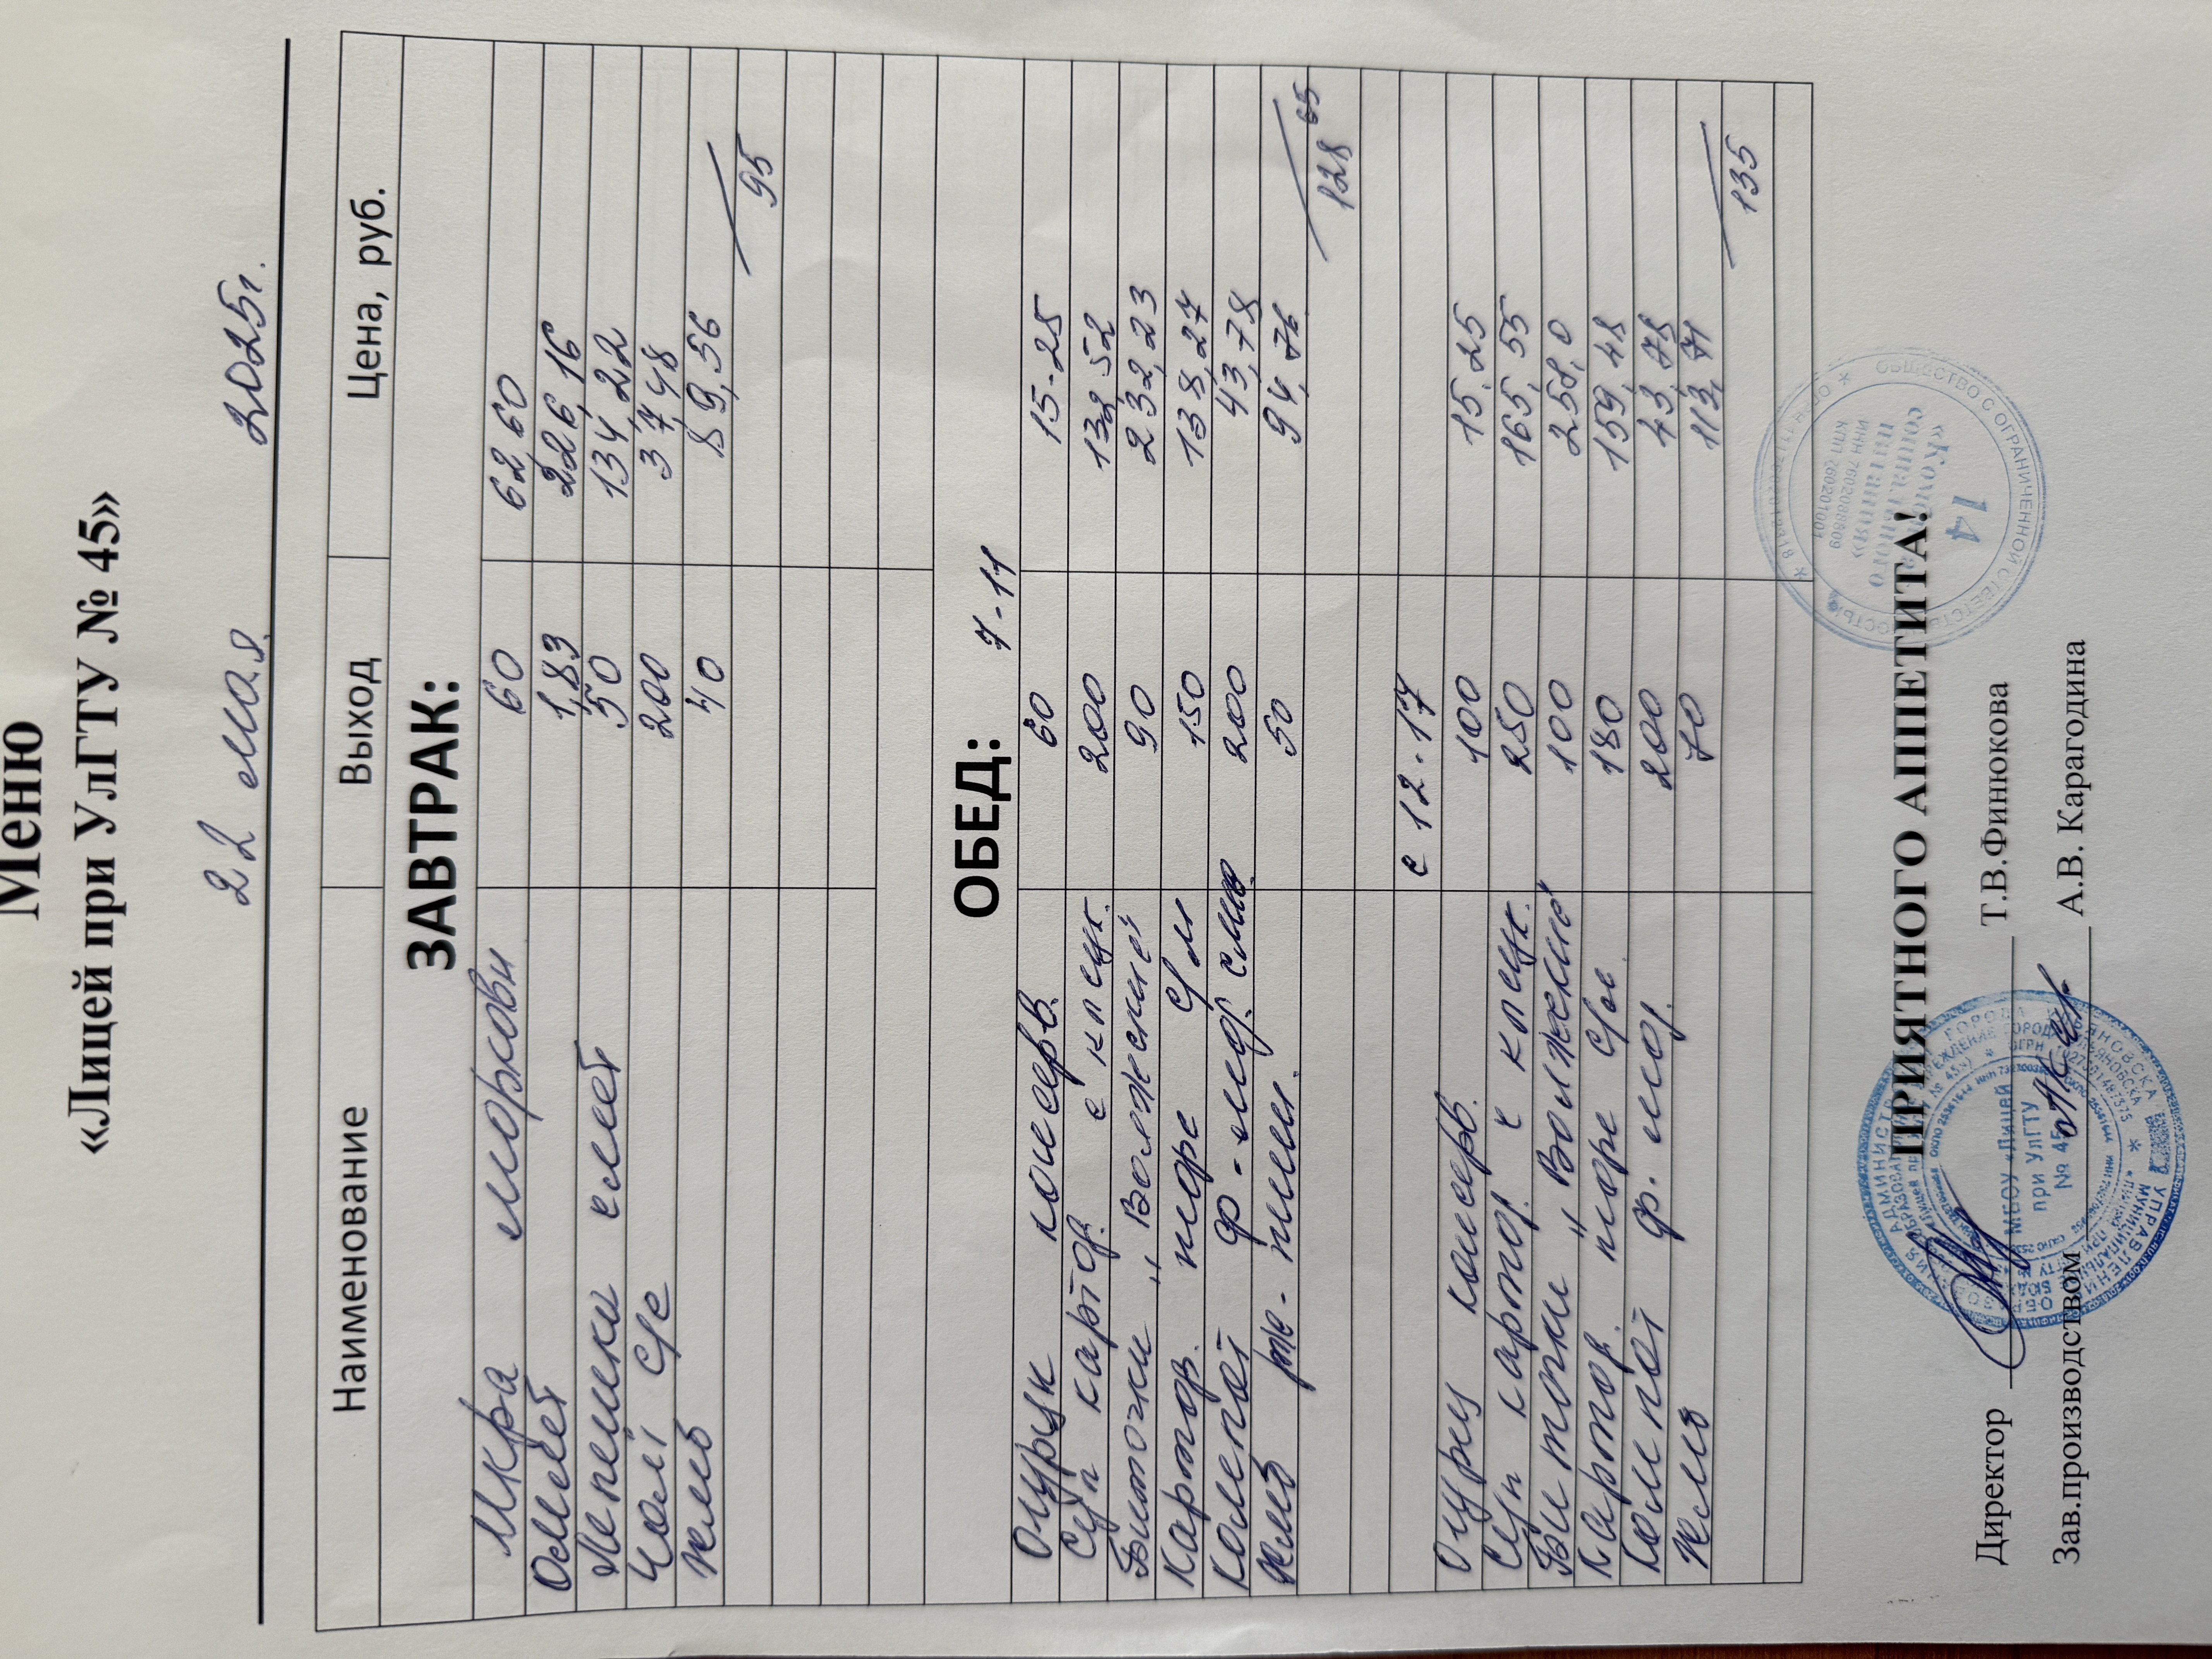 Меню
«Лицей при УлГТУ № 45»
22 мая 2025г.
Наименование Выход Цена, руб.
ЗАВТРАК:
Икра моркови 60 62,60
Омлет 1,83 226,16
Лепешки смет 50 134,22
Чай с/с 200 37,48
Хлеб 40 89,56
95
ОБЕД: 7-11
Огурцы консерв. 60 15-25
Суп картоф. с клецк. 200 132 52
Биточки „Волжский" 90 232,23
Картоф. пюре с/м 150 138,27
Компот ф-ягод. смен. 200 43,78
Хлеб рж-пшен. 50 94,76
128 65
с 12-17
Огурец консерв. 100 15,25
Суп картоф. с клецк. 250 165,55
Биточки „Волжский" 100 258,0
Картоф. пюре с/м. 180 159,48
Компот ф. ягод. 200 43,78
Хлеб 70 113,71
135
ПРИЯТНОГО АППЕТИТА!
Директор Т.В.Финюкова
Зав.производством А.В. Карагодина
МБОУ «Лицей
при УлГТУ
№ 45»
ОБЩЕСТВО С ОГРАНИЧЕННОЙ ОТВЕТСТВЕННОСТЬЮ
социального
питания»
14